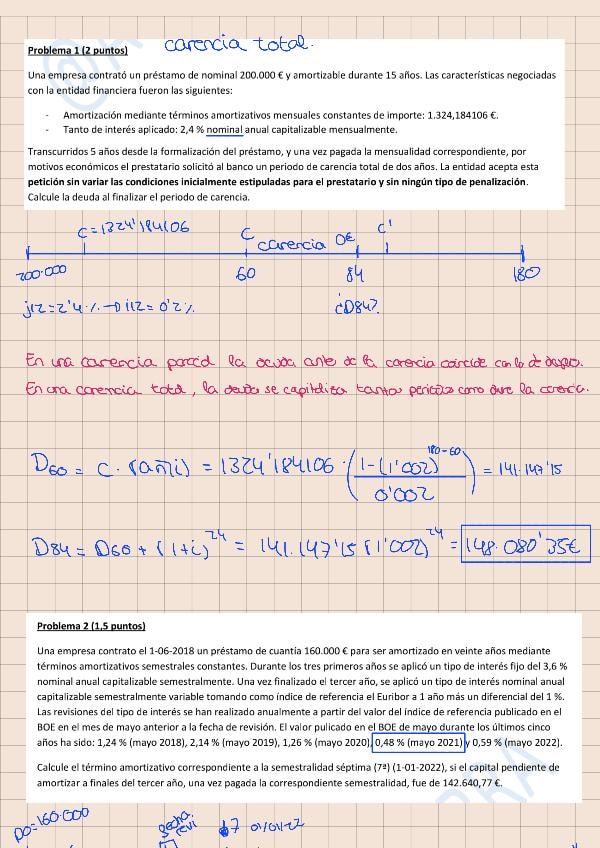 Problema 1 (2 puntos) carencia total.
Una empresa contrató un préstamo de nominal 200.000 € y amortizable durante 15 años. Las características negociadas
con la entidad financiera fueron las siguientes:
- Amortización mediante términos amortizativos mensuales constantes de importe: 1.324,184106 €.
- Tanto de interés aplicado: 2,4 % nominal anual capitalizable mensualmente.
Transcurridos 5 años desde la formalización del préstamo, y una vez pagada la mensualidad correspondiente, por
motivos económicos el prestatario solicitó al banco un periodo de carencia total de dos años. La entidad acepta esta
petición sin variar las condiciones inicialmente estipuladas para el prestatario y sin ningún tipo de penalización.
Calcule la deuda al finalizar el periodo de carencia.
C=1324'184106 C carencia 0€ C'
200.000 60 84 180
j12=2'4% → i12=0'2% ¿D84?
En una carencia parcial la deuda antes de la carencia coincide con la de después.
En una carencia total, la deuda se capitaliza tantos periodos como dure la carencia.
D60 = C · (an¬i) = 1324'184106 · (1-(1'002)^180-60 / 0'002) = 141.147'15
D84 = D60 + (1+i)^24 = 141.147'15 (1'002)^24 = 148.080'35€
Problema 2 (1,5 puntos)
Una empresa contrato el 1-06-2018 un préstamo de cuantía 160.000 € para ser amortizado en veinte años mediante
términos amortizativos semestrales constantes. Durante los tres primeros años se aplicó un tipo de interés fijo del 3,6 %
nominal anual capitalizable semestralmente. Una vez finalizado el tercer año, se aplicó un tipo de interés nominal anual
capitalizable semestralmente variable tomando como índice de referencia el Euribor a 1 año más un diferencial del 1 %.
Las revisiones del tipo de interés se han realizado anualmente a partir del valor del índice de referencia publicado en el
BOE en el mes de mayo anterior a la fecha de revisión. El valor pulicado en el BOE de mayo durante los últimos cinco
años ha sido: 1,24 % (mayo 2018), 2,14 % (mayo 2019), 1,26 % (mayo 2020), 0,48 % (mayo 2021) y 0,59 % (mayo 2022).
Calcule el término amortizativo correspondiente a la semestralidad séptima (7ª) (1-01-2022), si el capital pendiente de
amortizar a finales del tercer año, una vez pagada la correspondiente semestralidad, fue de 142.640,77 €.
D0=160.000 fecha revi 7 01/01-22